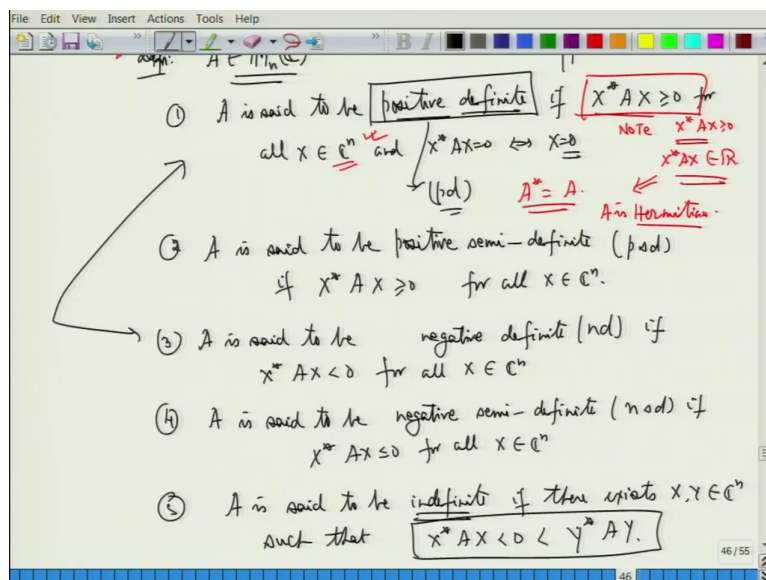 File Edit View Insert Actions Tools Help
A ∈ M_n(ℂ)
① A is said to be positive definite if X* A X ≥ 0 for
NOTE X* A X ≥ 0
all X ∈ ℂⁿ and X* A X = 0 ⇔ X = 0
X* A X ∈ ℝ
(pd) A* = A. A is Hermitian.
② A is said to be positive semi-definite (psd)
if X* A X ≥ 0 for all X ∈ ℂⁿ.
③ A is said to be negative definite (nd) if
X* A X < 0 for all X ∈ ℂⁿ
④ A is said to be negative semi-definite (nsd) if
X* A X ≤ 0 for all X ∈ ℂⁿ
⑤ A is said to be indefinite if there exists X, Y ∈ ℂⁿ
such that X* A X < 0 < Y* A Y.
46 / 55
46